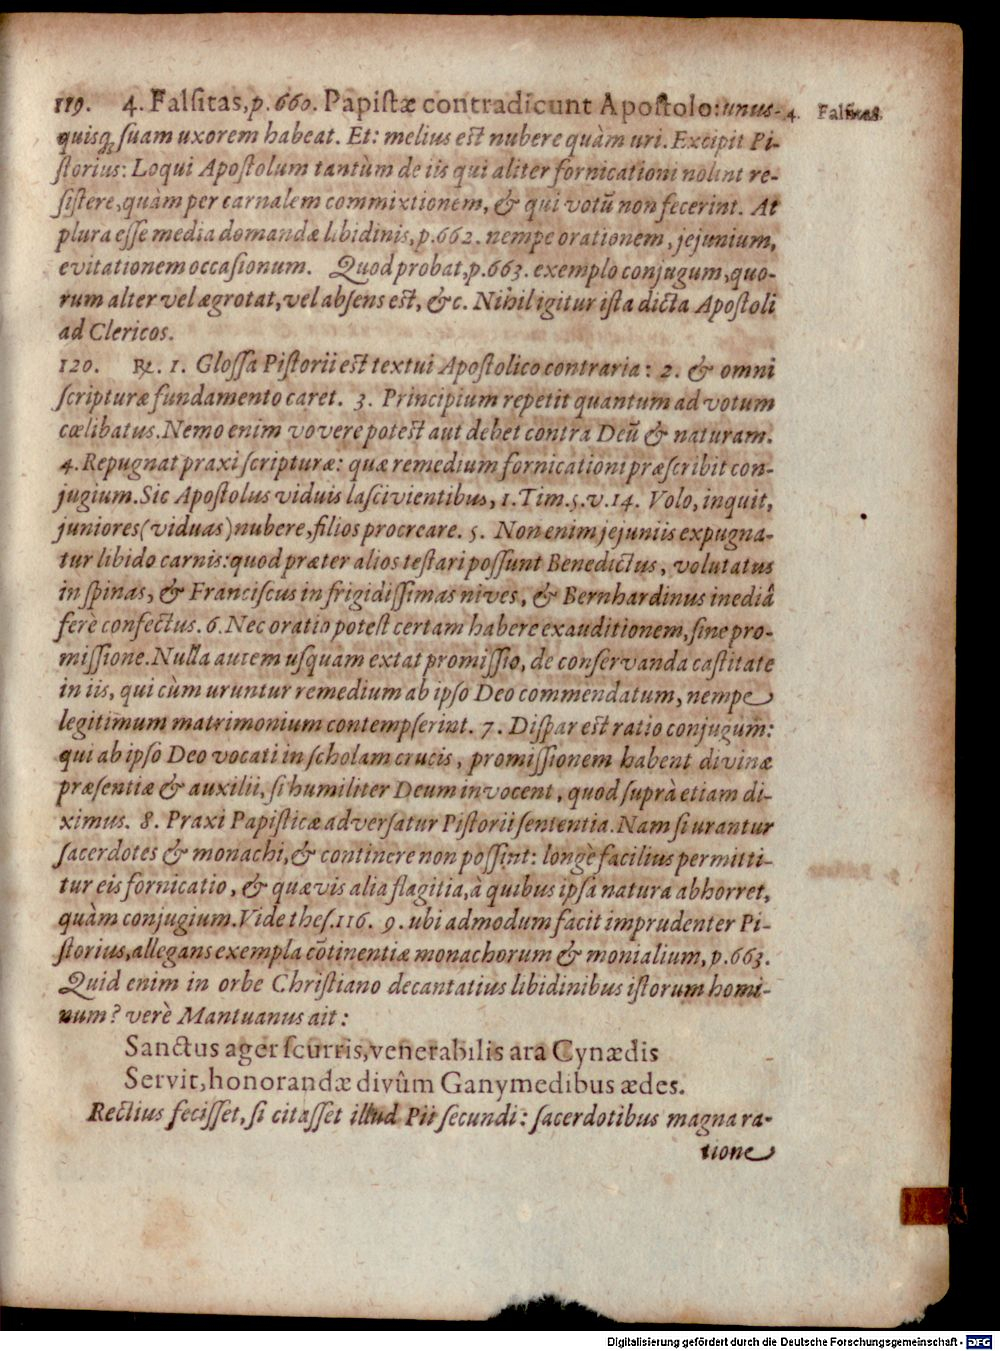 119. 4. Falſitas, p. 660. Papiſtæ contradicunt Apoſtolo: unus-
4. Falſitas.
quisq́ ſuam uxorem habeat. Et: melius eſt nubere quàm uri. Excipit Pi-
ſtorius: Loqui Apoſtolum tantùm de iis qui aliter fornicationi nolint re-
ſiſtere, quàm per carnalem commixtionem, & qui votũ non fecerint. At
plura eſſe media domandæ libidinis, p. 662. nempe orationem, jejunium,
evitationem occaſionum. Quod probat, p. 663. exemplo conjugum, quo-
rum alter vel ægrotat, vel abſens eſt, &c. Nihil igitur iſta dicta Apoſtoli
ad Clericos.
120. ℞. 1. Gloſſa Piſtorii eſt textui Apoſtolico contraria: 2. & omni
ſcripturæ fundamento caret. 3. Principium repetit quantum ad votum
cœlibatus. Nemo enim vovere poteſt aut debet contra Deũ & naturam.
4. Repugnat praxi ſcripturæ: quæ remedium fornicationi præſcribit con-
jugium. Sic Apoſtolus viduis laſcivientibus, 1. Tim. 5. v. 14. Volo, inquit,
juniores (viduas) nubere, filios procreare. 5. Non enim jejuniis expugna-
tur libido carnis: quod præter alios teſtari poſſunt Benedictus, volutatus
in ſpinas, & Franciſcus in frigidiſſimas nives, & Bernhardinus inediâ
ferè confectus. 6. Nec oratio poteſt certam habere exauditionem, ſine pro-
miſſione. Nulla autem uſquam extat promiſſio, de conſervanda caſtitate
in iis, qui cùm uruntur remedium ab ipſo Deo commendatum, nempe
legitimum matrimonium contempſerint. 7. Diſpar eſt ratio conjugum:
qui ab ipſo Deo vocati in ſcholam crucis, promiſſionem habent divinæ
præſentiæ & auxilii, ſi humiliter Deum invocent, quod ſuprà etiam di-
ximus. 8. Praxi Papiſticæ adverſatur Piſtorii ſententia. Nam ſi urantur
ſacerdotes & monachi, & continere non poſſint: longè facilius permitti-
tur eis fornicatio, & quævis alia flagitia, à quibus ipſa natura abhorret,
quàm conjugium. Vide theſ. 116. 9. ubi admodum facit imprudenter Pi-
ſtorius, allegans exempla cõtinentiæ monachorum & monialium, p. 663.
Quid enim in orbe Chriſtiano decantatius libidinibus iſtorum homi-
num? verè Mantuanus ait:
Sanctus ager ſcurris, venerabilis ara Cynædis
Servit, honorandæ divûm Ganymedibus ædes.
Rectius feciſſet, ſi citaſſet illud Pii ſecundi: ſacerdotibus magna ra-
tione
Digitalisierung gefördert durch die Deutsche Forschungsgemeinschaft - DFG